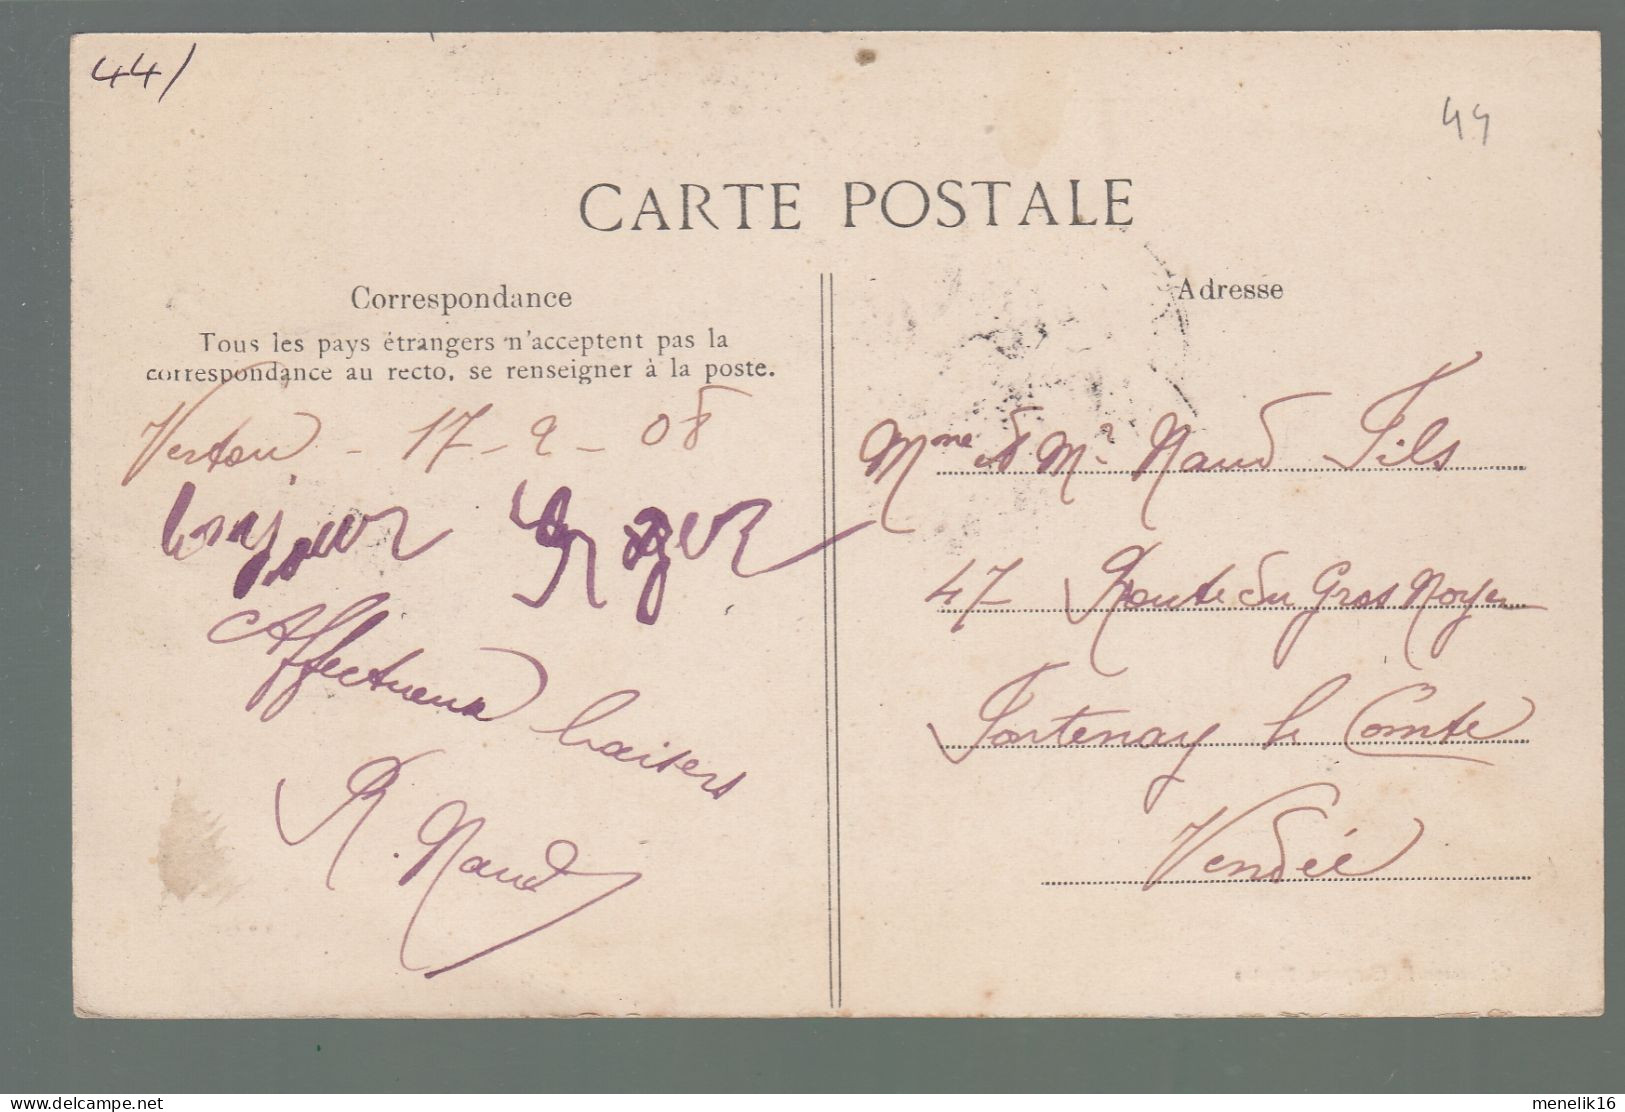 44/
44
CARTE POSTALE
Correspondance
Tous les pays étrangers n'acceptent pas la
correspondance au recto, se renseigner à la poste.
Vertou - 17-9-08
bonjour Roger
Affectueux baisers
R. Naud
Adresse
Mme et Mr Naud Fils
47 Route du Gros Noyer
Fontenay le Comte
Vendée
delcampe.net
menelik16